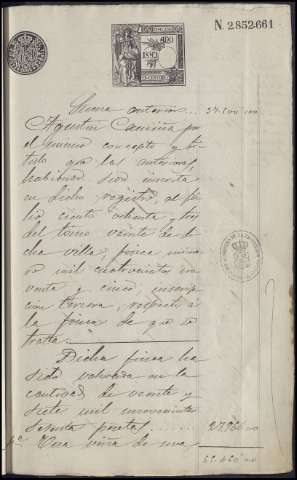 N. 2.852.661
Suma anterior
Agustín por
el mismo concepto y tí-
tulo que las anteriores,
habiendo sido inscrita
en dicho registro, al fo-
lio ciento ochenta y tres
del tomo veinte de di-
cha villa, finca núme-
ro mil cuatrocientos no-
venta y cinco, inscrip-
ción tercera, respecto á
la finca de que se
trata.
Dicha finca ha
sido valorada en la
cantidad de veinte y
siete mil novecientas
sesenta pesetas
Una viña de una